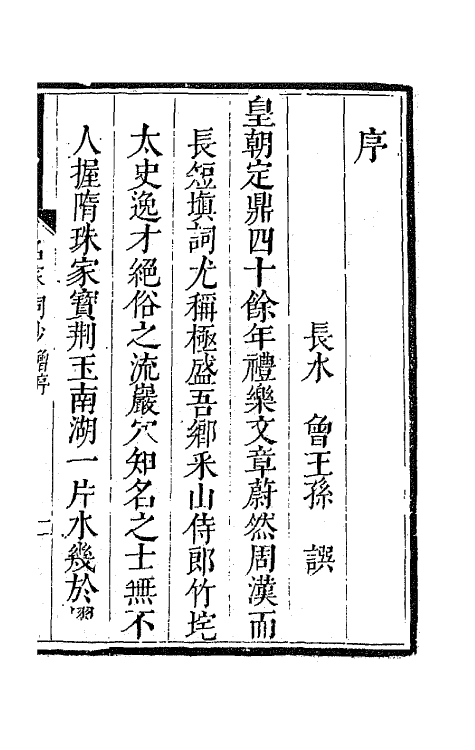 序
長水 曾王孫 譔
皇朝定鼎四十餘年禮樂文章蔚然周漢而
長短塡詞尤稱極盛吾鄉釆山侍郎竹垞
太史逸才絕俗之流巖穴知名之士無不
人握隋珠家寶荆玉南湖一片水幾於
名家詞鈔 曾序 一